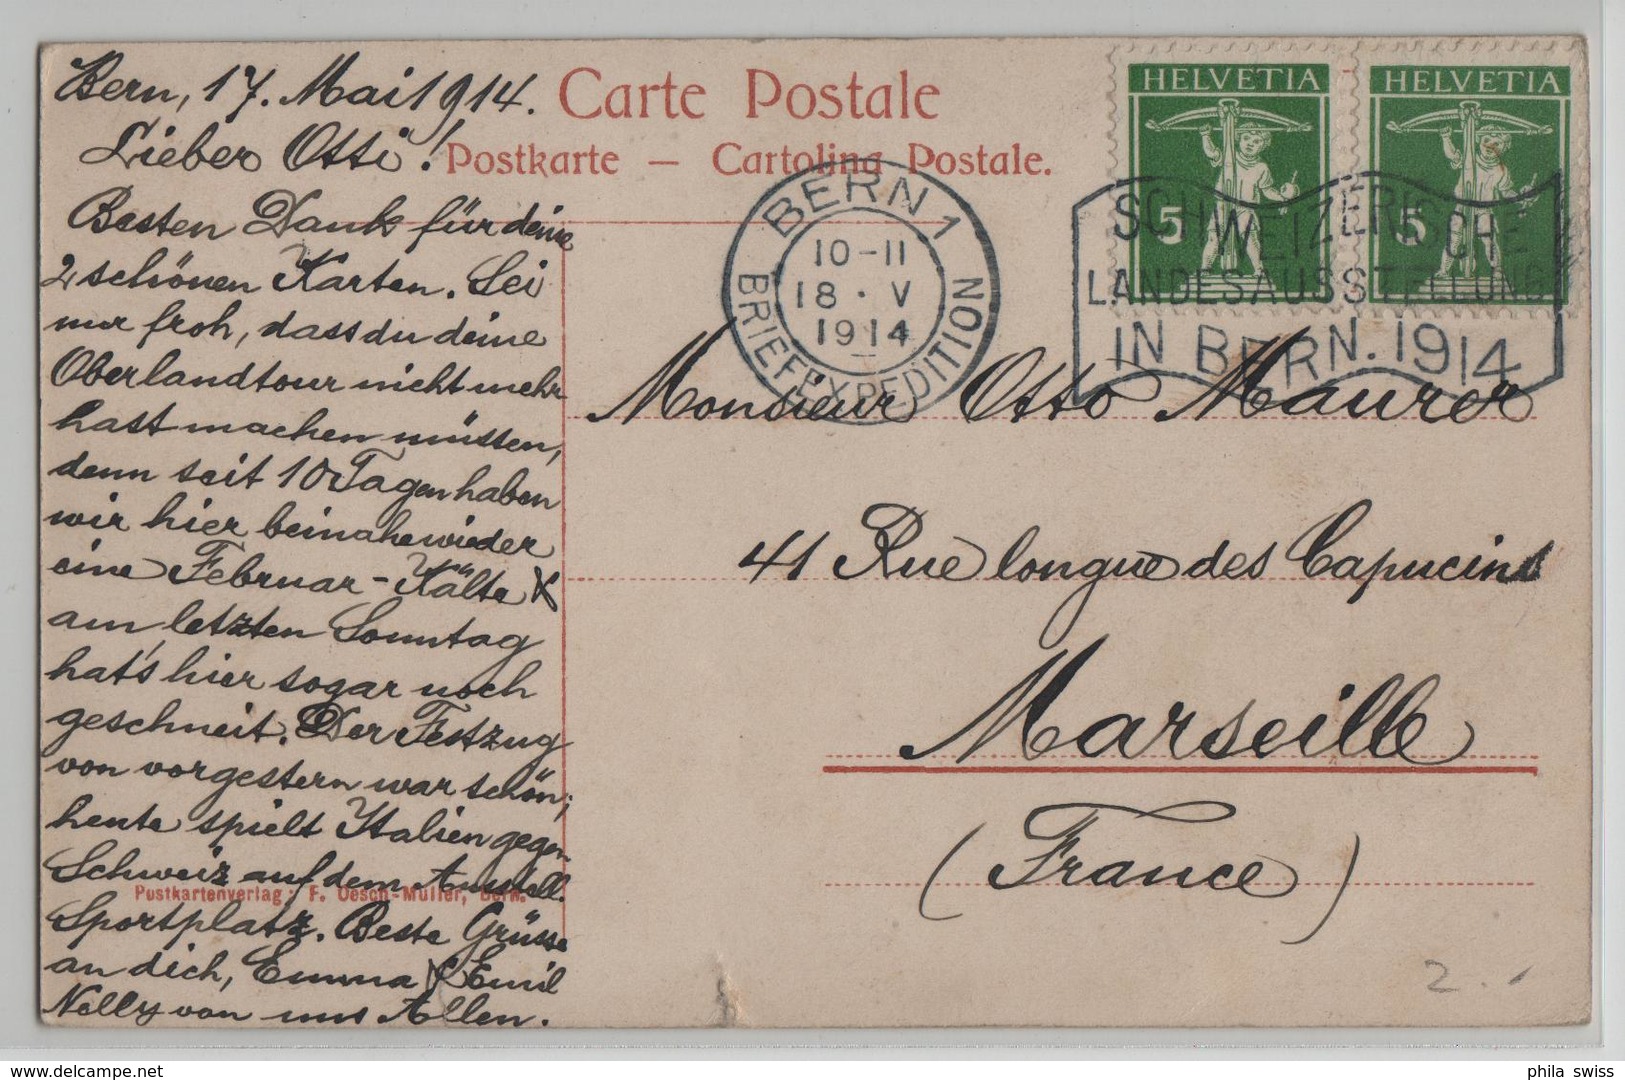 Bern, 17. Mai 1914.
Lieber Otti!
Besten Dank für deine
2 schönen Karten. Sei
nur froh, dass du deine
Oberlandtour nicht mehr
hast machen müssen,
denn seit 10 Tagen haben
wir hier beinahe wieder
eine Februar-Kälte &
am letzten Sonntag
hat's hier sogar noch
geschneit. Der Festzug
von vorgestern war schön;
heute spielt Italien gegen
Schweiz auf dem Ausstell.
Sportplatz. Beste Grüsse
an dich, Emma & Emil
Nelly von uns Allen.
Carte Postale
Postkarte — Cartolina Postale.
Postkartenverlag: F. Oesch-Müller, Bern.
BERN 1
10-11
18. V
1914
BRIEFEXPEDITION
HELVETIA
5
HELVETIA
5
SCHWEIZERISCHE
LANDESAUSSTELLUNG
IN BERN. 1914
Monsieur Otto Maurer
41 Rue longue des Capucins
Marseille
(France)
2.
phila swiss